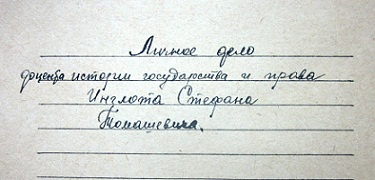 Личное дело
доцента истории государства и права
Инглота Стефана
Томашевича.